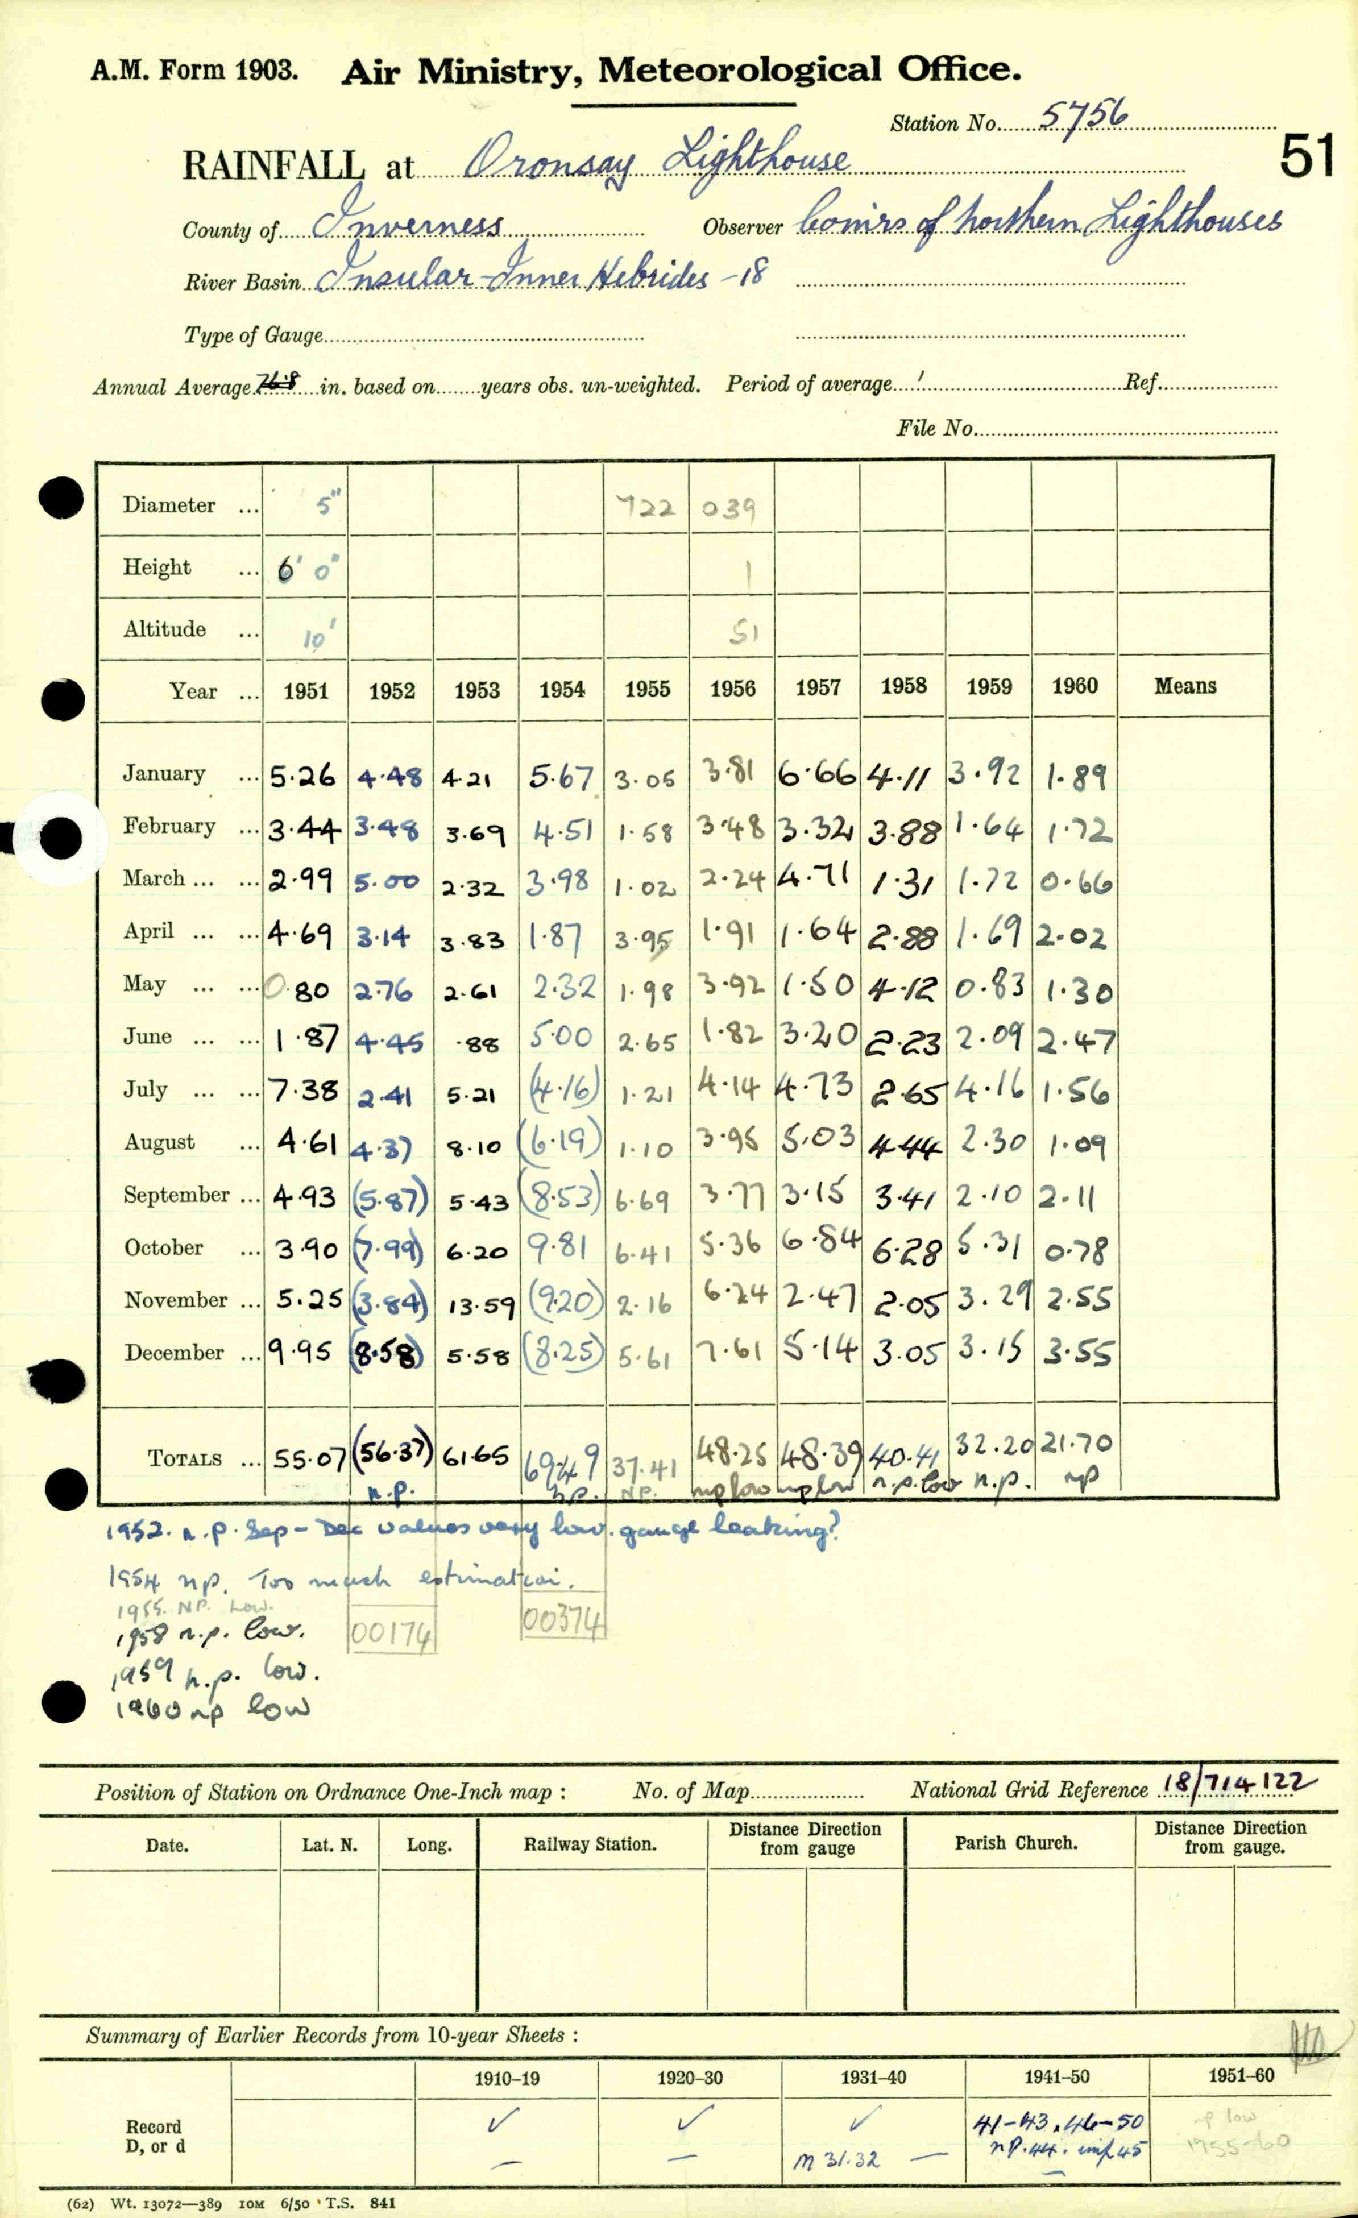 A.M. Form 1903. Air Ministry, Meteorological Office.
Station No. 5756
51
RAINFALL at Oronsay Lighthouse
County of Inverness Observer Comirs of Northern Lighthouses
River Basin Insular-Inner Hebrides -18
Type of Gauge
Annual Average 76.8 in. based on years obs. un-weighted. Period of average Ref.
File No.
Diameter ... 5" 722 039
Height ... 6' 0" 1
Altitude ... 10' 51
Year ... 1951 1952 1953 1954 1955 1956 1957 1958 1959 1960 Means
January ... 5.26 4.48 4.21 5.67 3.05 3.81 6.66 4.11 3.92 1.89
February ... 3.44 3.48 3.69 4.51 1.58 3.48 3.32 3.88 1.64 1.72
March ... ... 2.99 5.00 2.32 3.98 1.02 2.24 4.71 1.31 1.72 0.66
April ... ... 4.69 3.14 3.83 1.87 3.95 1.91 1.64 2.88 1.69 2.02
May ... ... 0.80 2.76 2.61 2.32 1.98 3.92 1.50 4.12 0.83 1.30
June ... ... 1.87 4.45 .88 5.00 2.65 1.82 3.20 2.23 2.09 2.47
July ... ... 7.38 2.41 5.21 (4.16) 1.21 4.14 4.73 2.65 4.16 1.56
August ... 4.61 4.37 8.10 (6.19) 1.10 3.95 5.03 4.44 2.30 1.09
September ... 4.93 (5.87) 5.43 (8.53) 6.69 3.77 3.15 3.41 2.10 2.11
October ... 3.90 (7.99) 6.20 9.81 6.41 5.36 6.84 6.28 5.31 0.78
November ... 5.25 (3.84) 13.59 (9.20) 2.16 6.24 2.47 2.05 3.29 2.55
December ... 9.95 (8.58) 5.58 (8.25) 5.61 7.61 5.14 3.05 3.15 3.55
TOTALS ... 55.07 (56.37) 61.65 69.49 37.41 48.25 48.39 40.41 32.20 21.70
n.p. n.p. N.P. np low np low n.p. low n.p. np
1952. n.p. Sep - Dec values very low. gauge leaking?
1954 np. Too much estimation.
1955. NP. Low.
1958 n.p. low.
00174 00374
1959 n.p. low.
1960 np low
Position of Station on Ordnance One-Inch map : No. of Map National Grid Reference 18/714122
Date. Lat. N. Long. Railway Station. Distance from Direction gauge Parish Church. Distance from Direction gauge.
Summary of Earlier Records from 10-year Sheets :
1910–19 1920–30 1931–40 1941–50 1951–60
Record ✓ ✓ ✓ 41-43. 46-50 np low
D, or d — — M 31.32 — np.44. imp 45 1955-60
—
(62) Wt. 13072—389 10M 6/50 T.S. 841